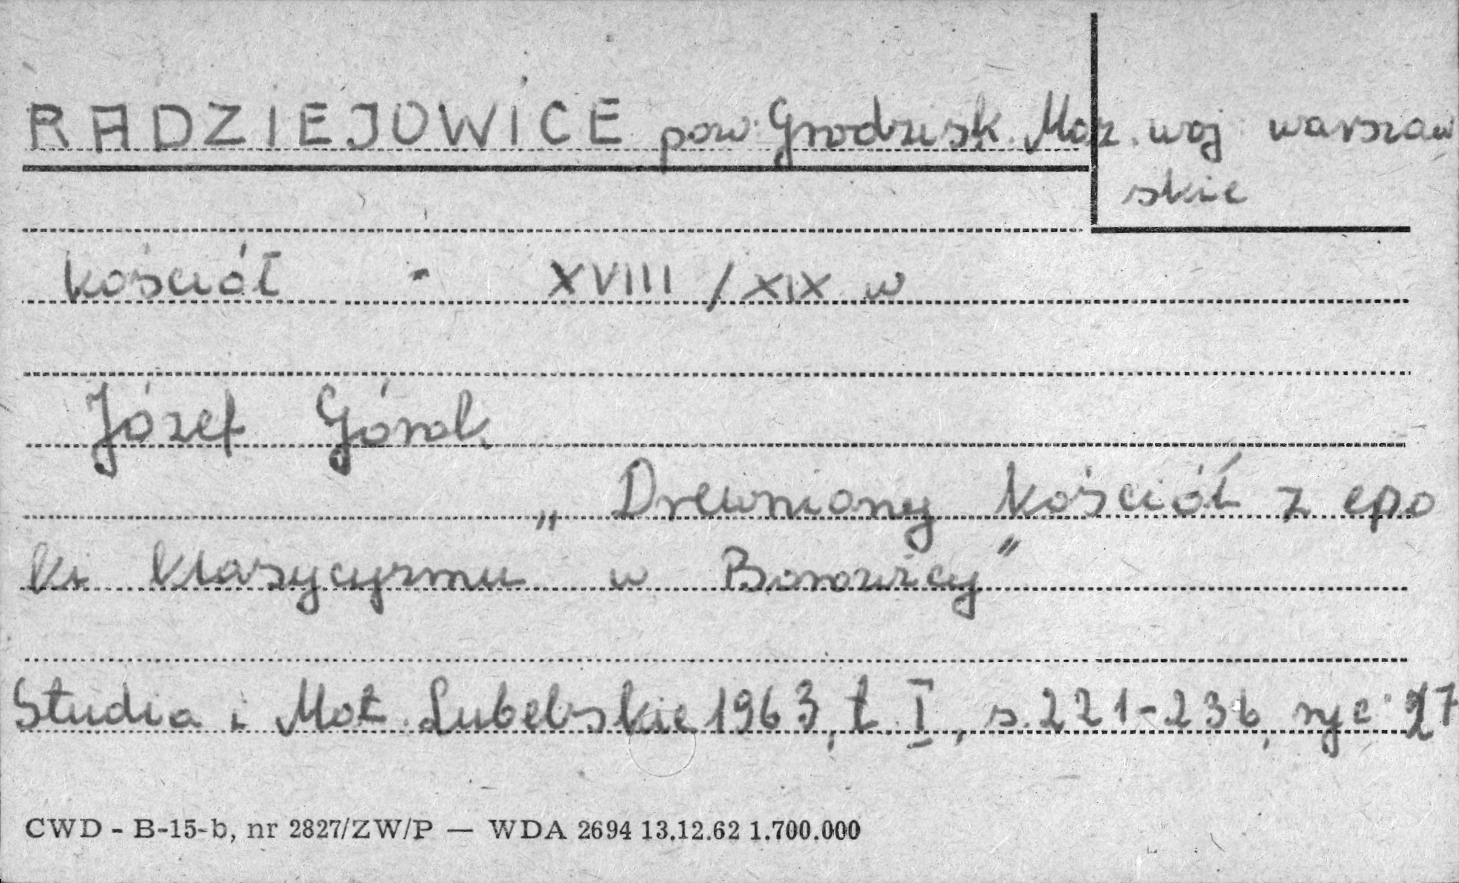 RADZIEJOWICE pow. Grodzisk. Maz. woj warszaw
skie
kościół - XVIII / XIX w
Józef Górak
„ Drewniany kościół z epo
ki klasycyzmu w Borowicy"
Studia i Mat. Lubelskie 1963, t. I, s. 221-236, ryc 27
CWD - B-15-b, nr 2827/ZW/P — WDA 2694 13.12.62 1.700.000